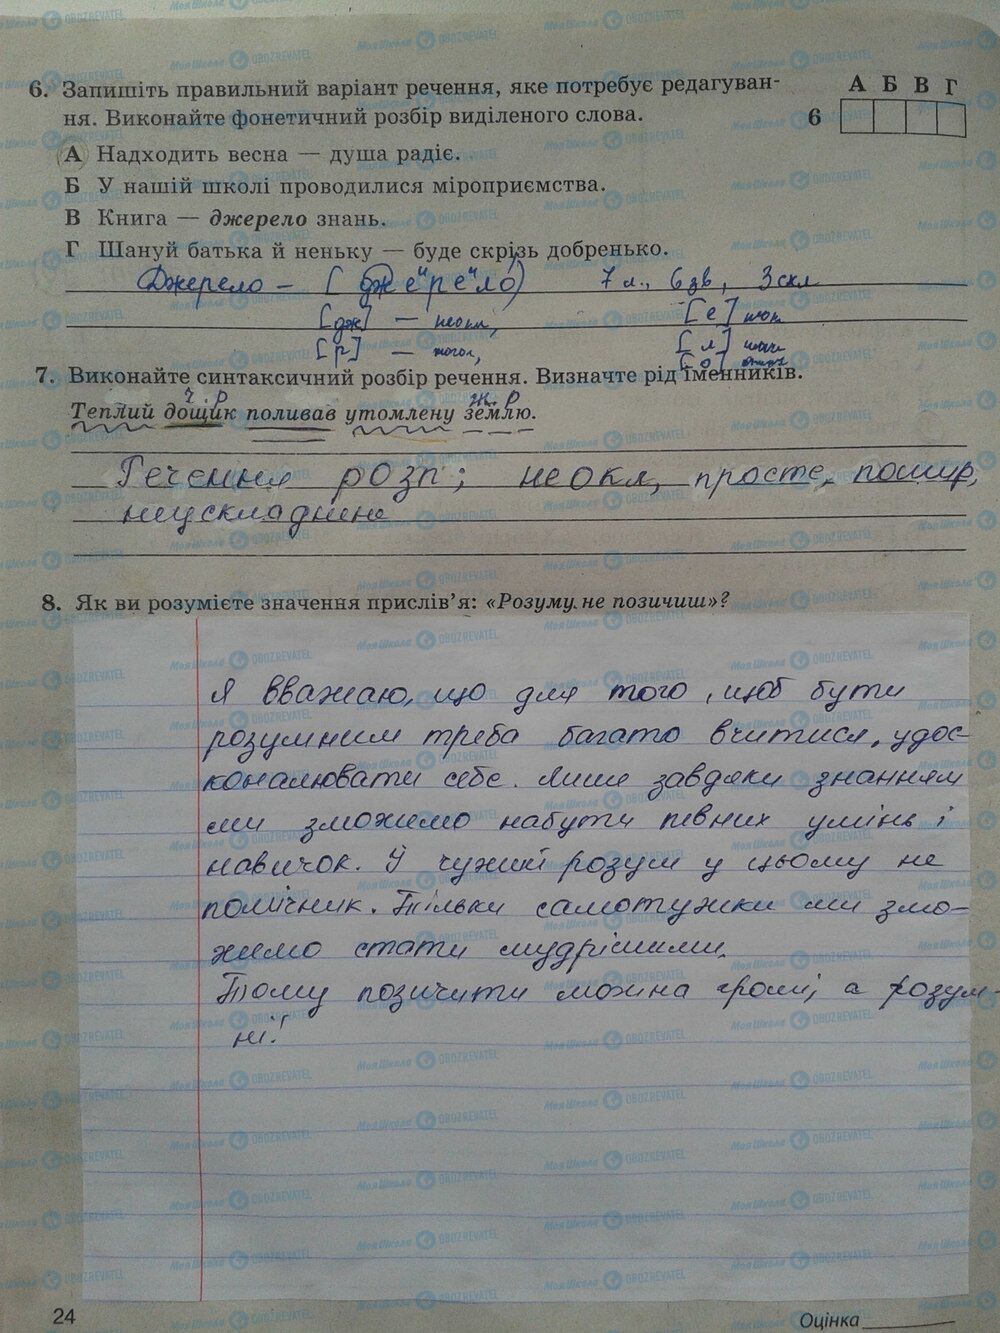 6. Запишіть правильний варіант речення, яке потребує редагуван-
ня. Виконайте фонетичний розбір виділеного слова.
А Б В Г
6
А Надходить весна — душа радіє.
Б У нашій школі проводилися міроприємства.
В Книга — джерело знань.
Г Шануй батька й неньку — буде скрізь добренько.
Джерело – [джеиреило] 7 л., 6 зв, 3 скл
[дж] – неокл,
[е]
[р] –
[л]
[о]
7. Виконайте синтаксичний розбір речення. Визначте рід іменників.
ч. р ж. р
Теплий дощик поливав утомлену землю.
Речення розп; неокл, просте, пошир,
неускладнене
8. Як ви розумієте значення прислів’я: «Розуму не позичиш»?
Я вважаю, що для того, щоб бути
розумним треба багато вчитися, удос-
коналювати себе. Лише завдяки знанням
ми зможимо набути певних умінь і
навичок. Й чужий розум у цьому не
помічник. Тільки самотужки ми змо-
жимо стати мудрішими.
Тому позичити можна гроші, а розум -
ні!
24
Оцінка
МояШкола OBOZREVATEL